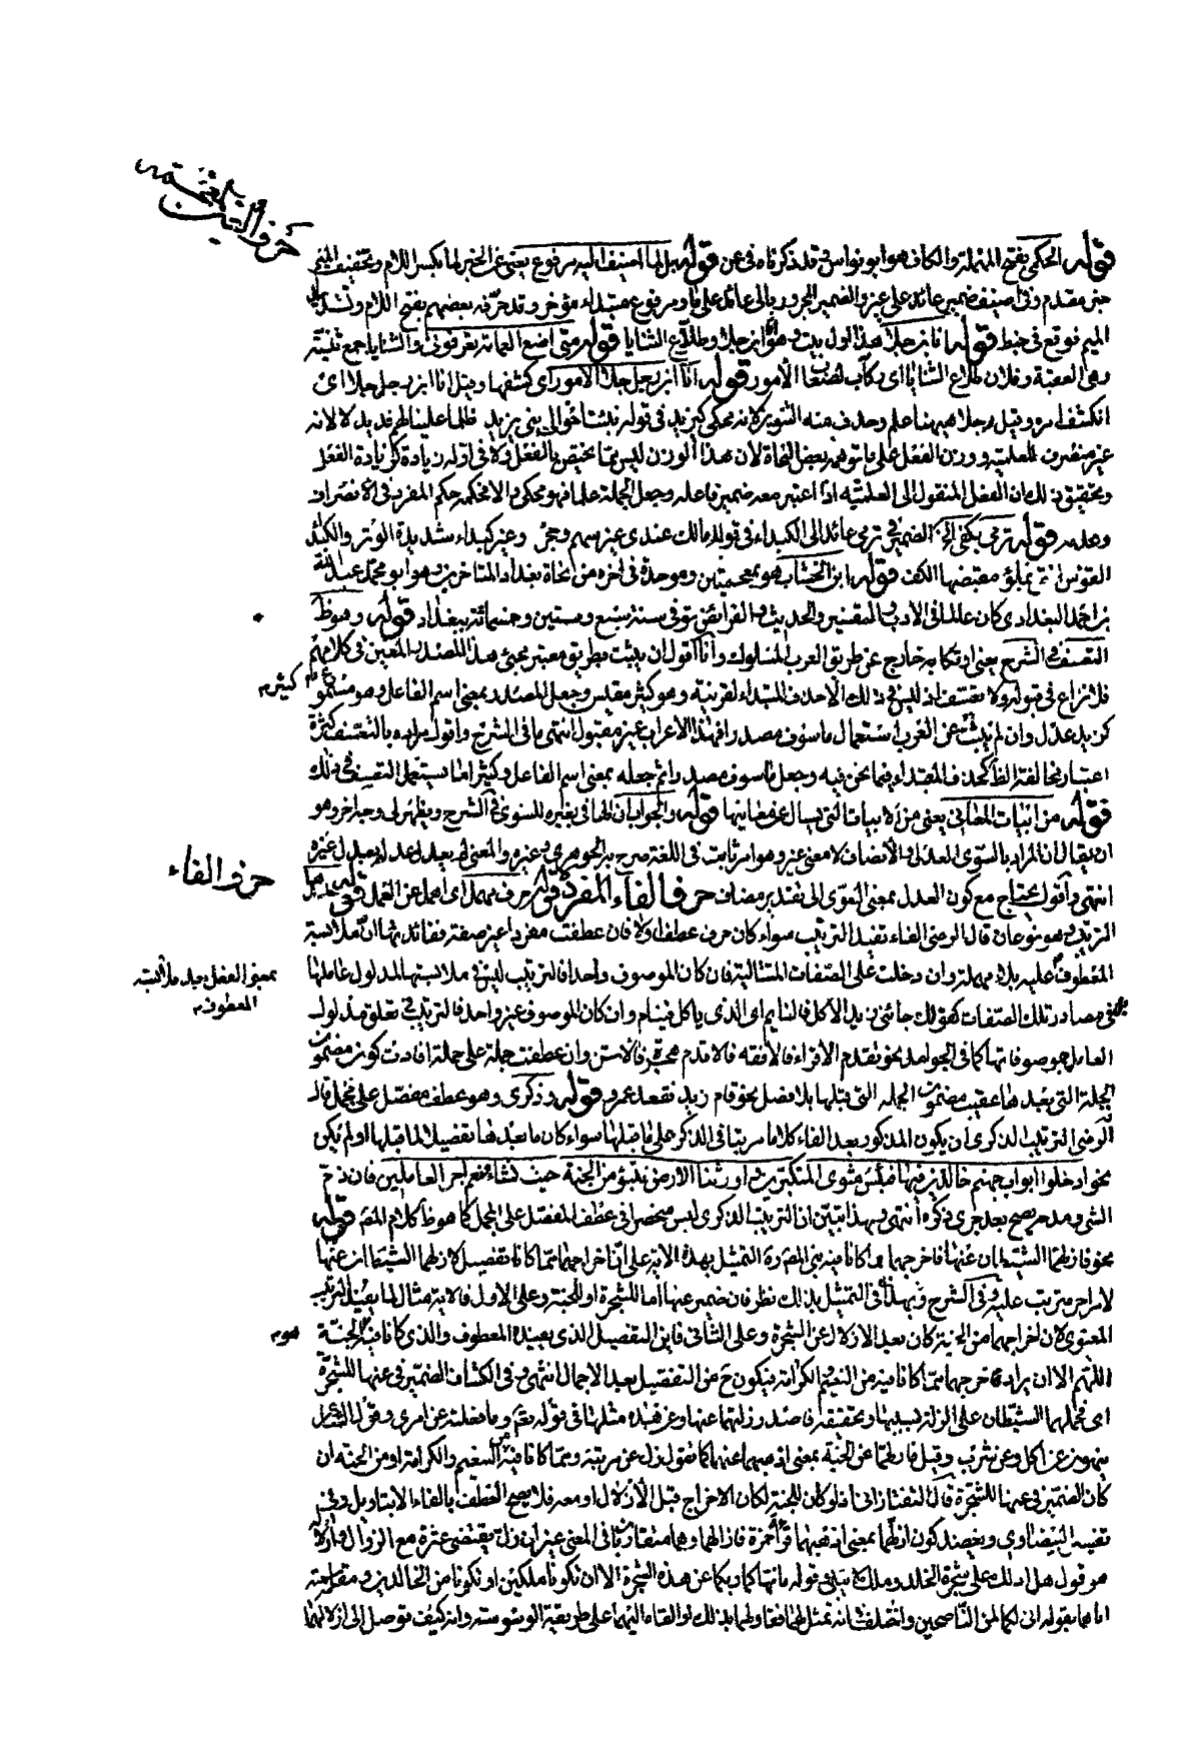 حرف الغين المعجمة
قوله الحكمي بفتح المهملة والكاف هو ابو نواس قد ذكرناه في عن قوله بل لما اضيف اليه مرفوع يعني غير الخبر لما بكسر اللام وتخفيف الميم
خبر مقدم وفي اضيف ضمير عائد على غير والضمير المجرور بالى عائد على ما ومرفوع مبتداء مؤخر وقد حرفه بعضهم بفتح اللام وتشديد
الميم فوقع في خبط قوله انا ابن جلا هذا اول بيت وهو انا ابن جلا وطلاع الثنايا قوله متى اضع العمامة تعرفوني والثنايا جمع ثنية
وهي العقبة وفلان طلاع الثنايا اى ركاب لصعاب الأمور قوله انا ابن رجل جلا الامور اى كشفها وقيل انا ابن رجل جلا اى
انكشف امره وقيل جلا ههنا علم وحذف منه التنوين لانه محكى كيزيد في قوله نبئت اخوالى بنى يزيد ظلما علينا لهم فديد لا لانه
غير منصرف للعلمية ووزن الفعل على ما توهمه بعض النحاة لان هذا الوزن ليس مما يختص بالفعل ولا في اوله زيادة كزيادة الفعل
وتحقيق ذلك ان الفعل المنقول الى العلمية اذا اعتبر معه ضمير فاعله وجعل الجملة علما فهو محكى والا فحكمه حكم المفرد في الانصراف
وعدمه قوله ترمى بكفى الخ الضمير في ترمى عائد الى الكبداء في قوله مالك عندى غير سهم وحجر وغير كبداء شديدة الوتر والكبداء
القوس التى يملؤ مقبضها الكف قوله ابن الخشاب هو بمعجمتين وموحدة في اخره من نحاة بغداد المتاخرين وهو ابو محمد عبد الله
بن احمد البغدادى كان عالما في الادب والتفسير والحديث والفرائض توفى سنة سبع وستين وخمسمائة ببغداد قوله وهو ظ
التعسف في الشرح يعنى ارتكابه خارج عن طريق العرب المسلوك وانا اقول ان يثبت بطريق معتبر مجئ هذا المصدر المعين في كلامهم
كثير
فلا نزاع في قبوله ولا تعسف اذ ليس في ذلك الا حذف المبتداء لقرينة وهو كثير مقيس وجعل المصدر بمعنى اسم الفاعل وهو مسموع
كزيد عدل وان لم يثبت عن العرب استعمال ماسوف مصدرا فهذا الاعراب غير مقبول انتهى ما في الشرح واقول مراده بالتعسف كثرة
اعتبار مخالفة الظ كحذف المبتداء فيما نحن فيه وجعل ماسوف مصدرا ثم جعله بمعنى اسم الفاعل وكثيرا ما يستعمل التعسف في ذلك
قوله من ابيات المعانى يعنى من الابيات التى يسال عن معانيها قوله والجواب ان الهاء في بغيره للسوى في الشرح ويظهر لى وجه اخر وهو
ان يقال ان المراد بالسوى العدل والانصاف لا معنى غير وهو امر ثابت في اللغة صرح به الجوهرى وغيره والمعنى لم يعدل لعدله بعدل غيره
حرف الفاء
انتهى واقول يحتاج مع كون العدل بمعنى السوى الى تقدير مضاف حرف الفاء المفردة قوله حرف مهمل اى اهمل عن العمل قوله
الترتيب وهو نوعان قال الرضى الفاء تفيد الترتيب سواء كان حرف عطف او لا فان عطفت مفردا غير صفة ففائدتها ان ملابسة
بمعنى الفعل بعد ملابسة المعطوف
المعطوف عليه بلا مهملة وان دخلت على الصفات المتتالية فان كان الموصوف واحدا فالترتيب ليس في ملابستها لمدلول عاملها
بل في مصادر تلك الصفات كقولك جائنى زيد الاكل فالنايم اى الذى ياكل فينام وان كان الموصوف غير واحد فالترتيب في تعلق مدلول
العامل بموصوفاتها كما في الجوامد نحو تقدم الاقراء فالافقه فالاقدم هجرة فالاسن وان عطفت جملة على جملة افادت كون مضمون
الجملة التى بعدها عقيب مضمون الجملة التى قبلها بلا فصل نحو قام زيد فقعد عمرو قوله وذكرى وهو عطف مفصل على مجمل قال
الرضى الترتيب الذكرى ان يكون المذكور بعد الفاء كلاما مرتبا في الذكر على ما قبلها سواء كان ما بعدها تفصيلا لما قبلها او لم يكن
نحو ادخلوا ابواب جهنم خالدين فيها فبئس مثوى المتكبرين واورثنا الارض نتبوؤ من الجنة حيث نشاء فنعم اجر العاملين فان ذم
الشئ ومدحه يصح بعد جرى ذكره انتهى وبهذا تبين ان الترتيب الذكرى ليس منحصرا في عطف المفصل على المجمل كما هو ظ كلام المص قوله
نحو فازلهما الشيطان عنها فاخرجهما مما كانا فيه بنى المص ره التمثيل بهذه الاية على ان اخراجهما مما كانا تفصيل لازلهما الشيطان عنها
لا امر اخر مترتب عليه وفى الشرح وبهذا في التمثيل بذلك نظر فان ضمير عنها اما للشجرة او للجنة وعلى الاول فالاية مثال لما يفيد الترتيب
هو
المعنوى لان اخراجهما من الجنة كان بعد الازلال عن الشجرة وعلى الثانى فاين التفصيل الذى يفيده المعطوف والذى كانا فيه الجنة
اللهم الا ان يراد فاخرجهما مما كانا فيه من النعيم والكرامة فيكون ح من التفصيل بعد الاجمال انتهى وفى الكشاف الضمير في عنها للشجرة
اى فحملهما الشيطان على الزلة بسببها وتحقيقه فاصدر زلتهما عنها وعن هذه مثلها في قوله تعم وما فعلته عن امرى وقول الشاعر
ينهون عن اكل وعن شرب وقيل فازلهما عن الجنة بمعنى اذهبهما عنها كما تقول زل عن مرتبته ومما كانا فيه من النعيم والكرامة او من الجنة ان
كان الضمير في عنها للشجرة قال التفتازانى اذ لو كان للجنة لكان الاخراج قبل الازلال او معه فلا يصح العطف بالفاء الا بتاويل وفى
تفسير البيضاوى ويعضد كون ازلهما بمعنى اذهبهما قراءة حمزة فازالهما وهما متقاربان في المعنى غير ان زل يقتضى عثرة مع الزوال وازلاله
هو قول هل ادلك على شجرة الخلد وملك لا يبلى وقوله ما نهاكما ربكما عن هذه الشجرة الا ان تكونا ملكين او تكونا من الخالدين ومقاسمته
اياهما بقوله انى لكما لمن الناصحين واختلف في انه تمثل لهما فقاولهما بذلك او القاه اليهما على طريقة الوسوسة وانه كيف توصل الى ازلالهما